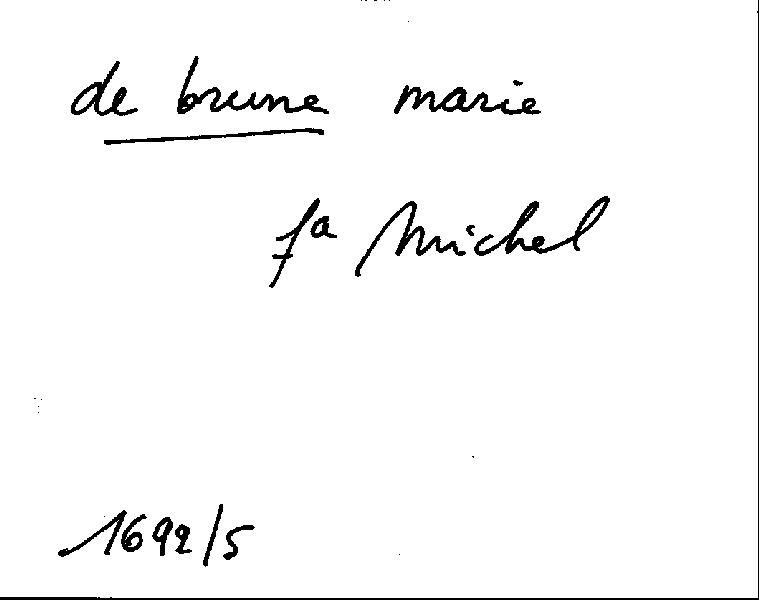 de brune marie
fa Michel
1692/5